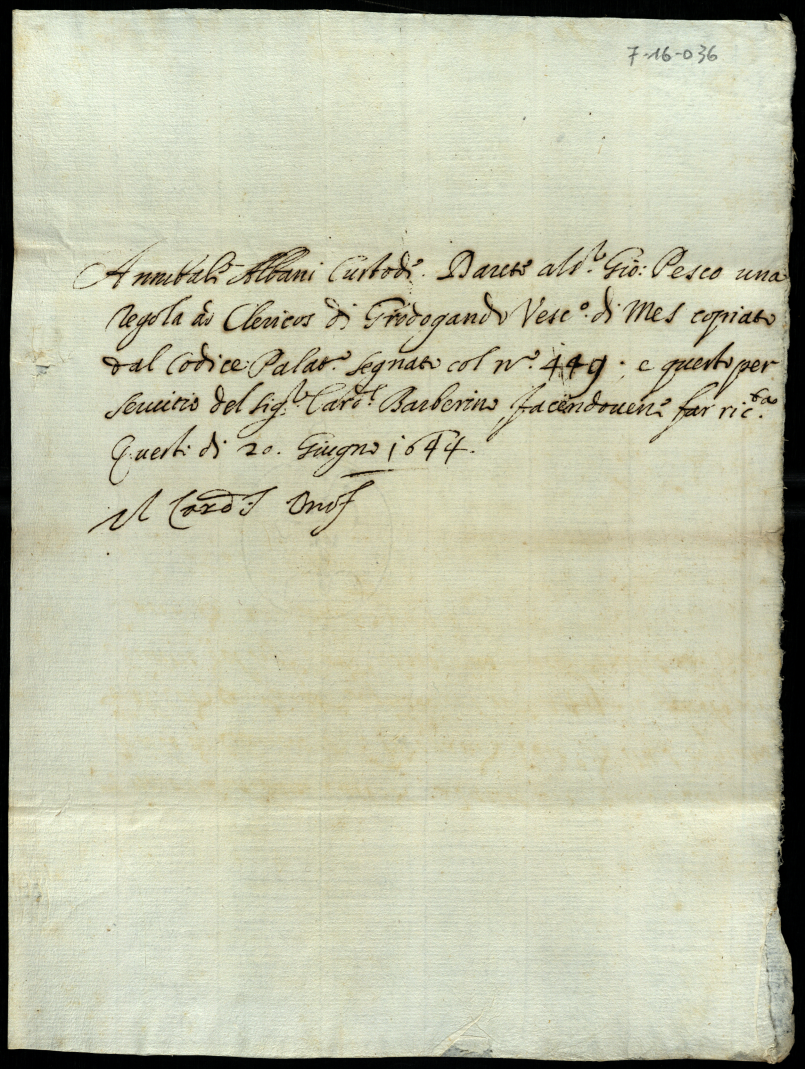 7-16-036
Annibale Albani Custode. Darete al S.r Gio: Pesco una
Regola ad Clericos di Gridogando Vesc.o di Mes copiata
dal Codice Palat.o segnato col n.o 449. e questo per
servitio del Sig.r Card.l Barberino, facendovene far ric.ta
Questi di 20. Giugno 1644.
Il Card.l Onof